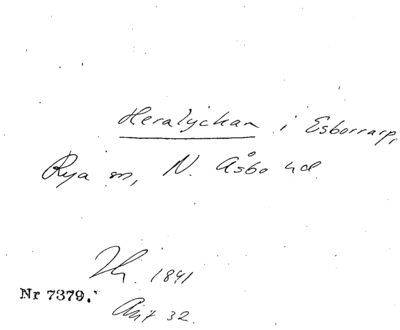 Heralyckan i Esborrarp,
Rya sn, N. Åsbo hd.
Th. 1841
Nr 7379.
Ant 32.